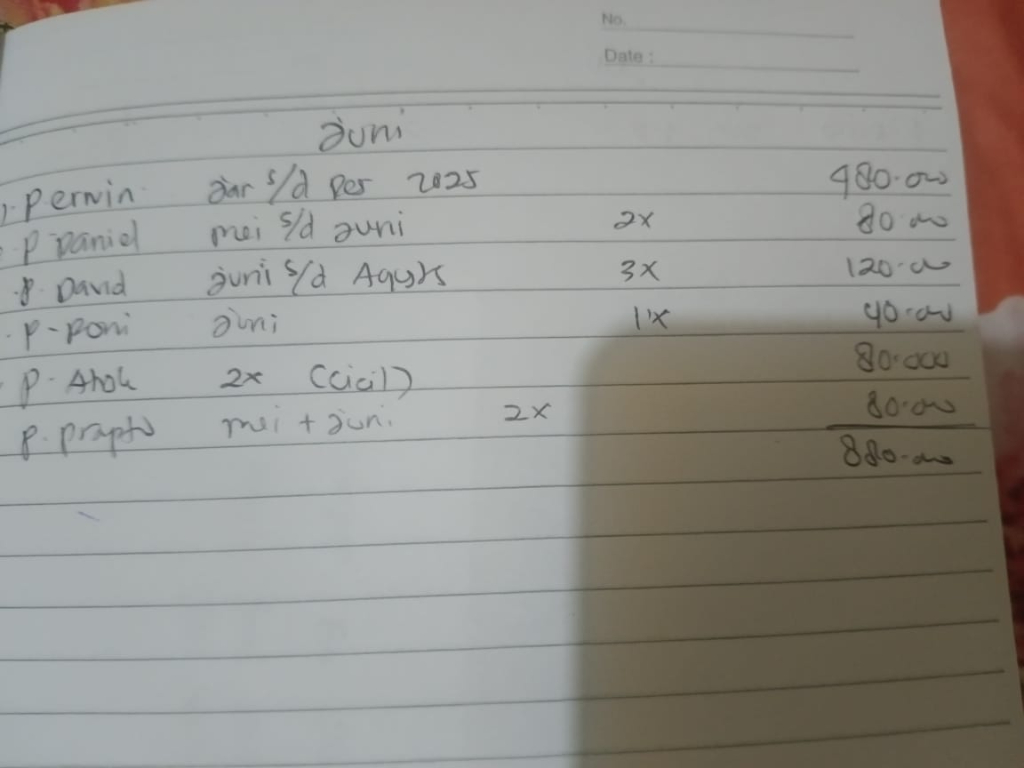 No.
Date :
Juni
1. P erwin Jan s/d Des 2025 480.000
P Daniel mei s/d Juni 2x 80.000
P. David Juni s/d Agus 3x 120.000
P - Poni Juni 1x 40.000
P. Ahok 2x (cicil) 80.000
P. Prapto mei + Juni 2x 80.000
880.000